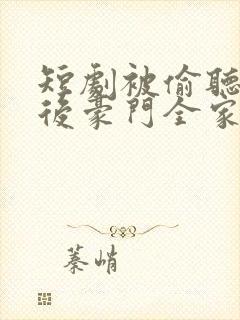 短劇被偷聽
後豪門全家
蓁峭